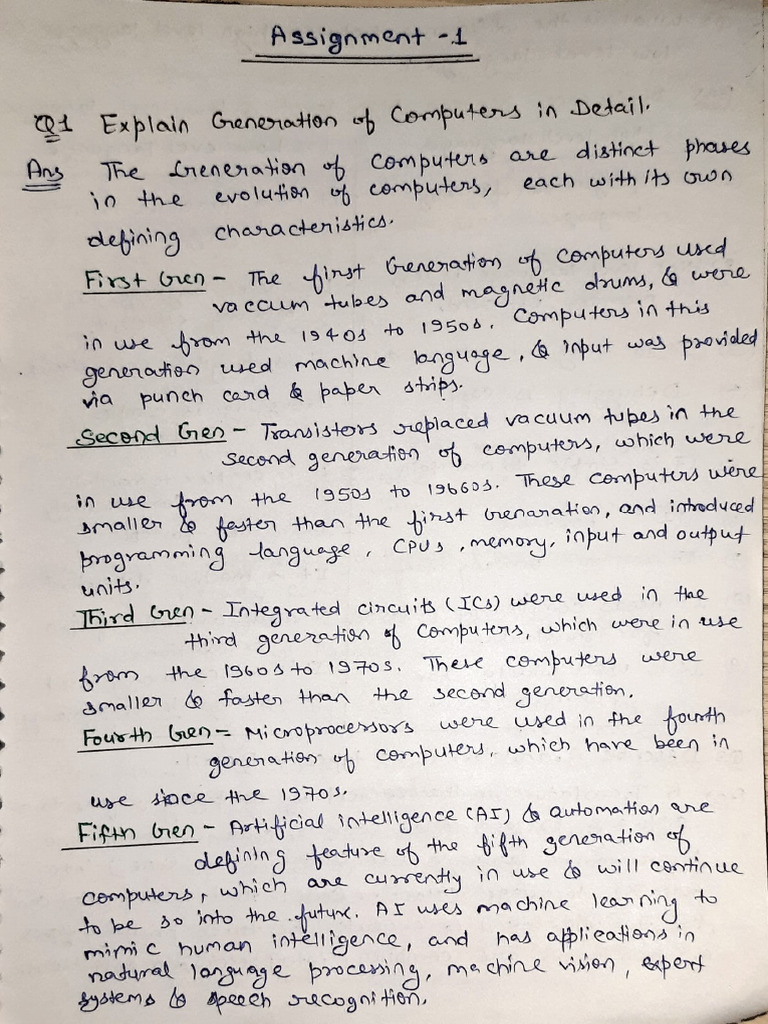 Assignment -1
Q1 Explain Generation of Computers in Detail.
Ans The Generation of Computers are distinct phases
in the evolution of computers, each with its own
defining characteristics.
First Gen - The first Generation of Computers used
vaccum tubes and magnetic drums, & were
in use from the 1940s to 1950s. Computers in this
generation used machine language, & input was provided
via punch card & paper strips.
Second Gen - Transistors replaced vacuum tubes in the
second generation of computers, which were
in use from the 1950s to 19660s. These computers were
smaller & faster than the first Grenaration, and introduced
programming language, CPUs, memory, input and output
units.
Third Gen - Integrated circuits (ICs) were used in the
third generation of Computers, which were in use
from the 1960s to 1970s. These computers were
smaller & faster than the second generation.
Fourth Gen - Microprocessors were used in the fourth
generation of computers, which have been in
use since the 1970s.
Fifth Gen - Artificial intelligence (AI) & automation are
defining feature of the fifth generation of
computers, which are currently in use & will continue
to be so into the future. AI uses machine learning to
mimic human intelligence, and has applications in
natural language processing, machine vision, expert
systems & speech recognition.